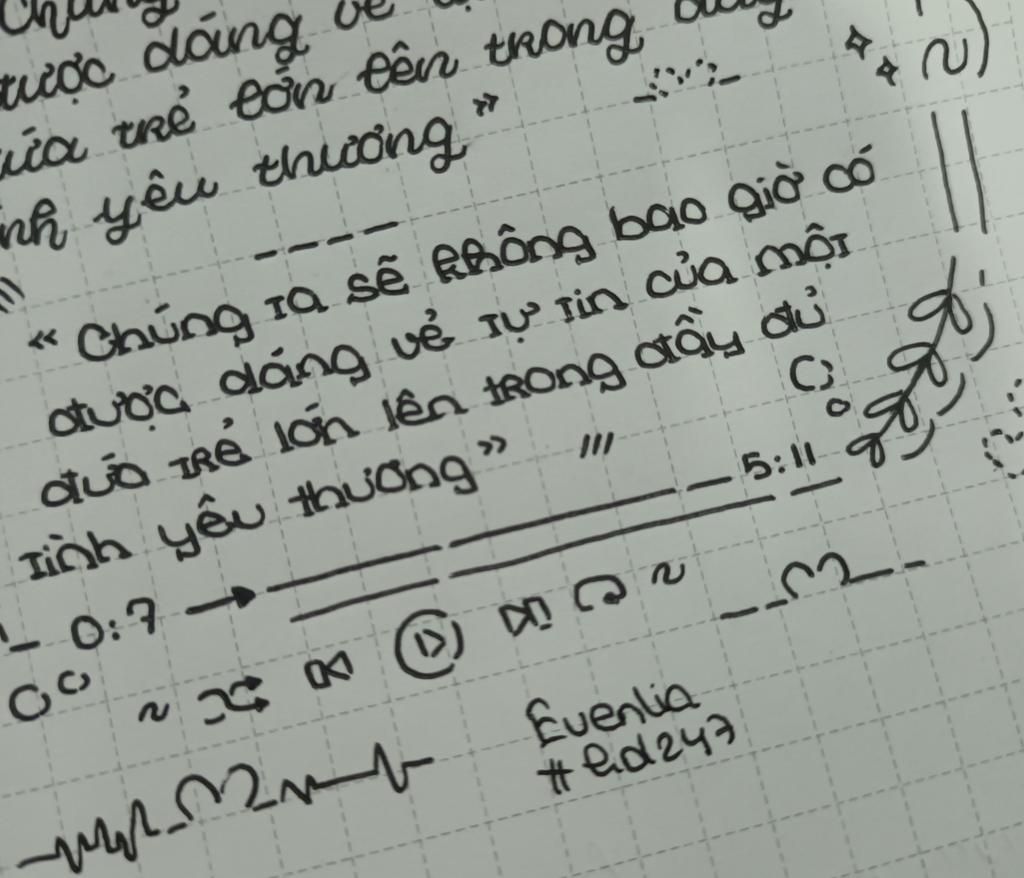 Chúng
được dáng vẻ
của trẻ lớn lên trong
yêu thương”
“Chúng ta sẽ không bao giờ có
được dáng vẻ tự tin của một
đứa trẻ lớn lên trong đầy đủ
tình yêu thương”
5:11
0:7
Evenlia
#eid247